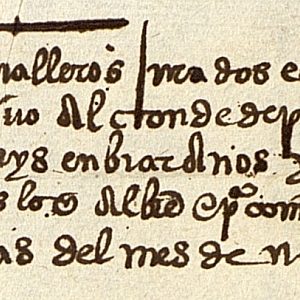 valleros mados e
uo al conde de p
eys enbiar a nos
s lo Albe e po com
as del mes de